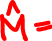 M̂=